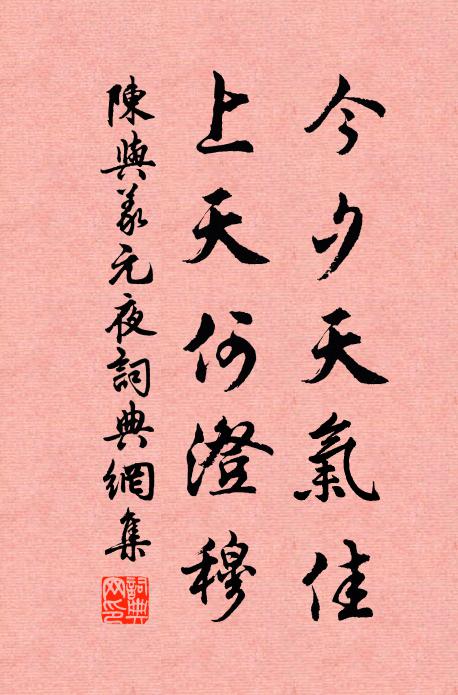 今夕天氣佳
上天何澄穆
陳與義元夜詞典網集
詞典網印